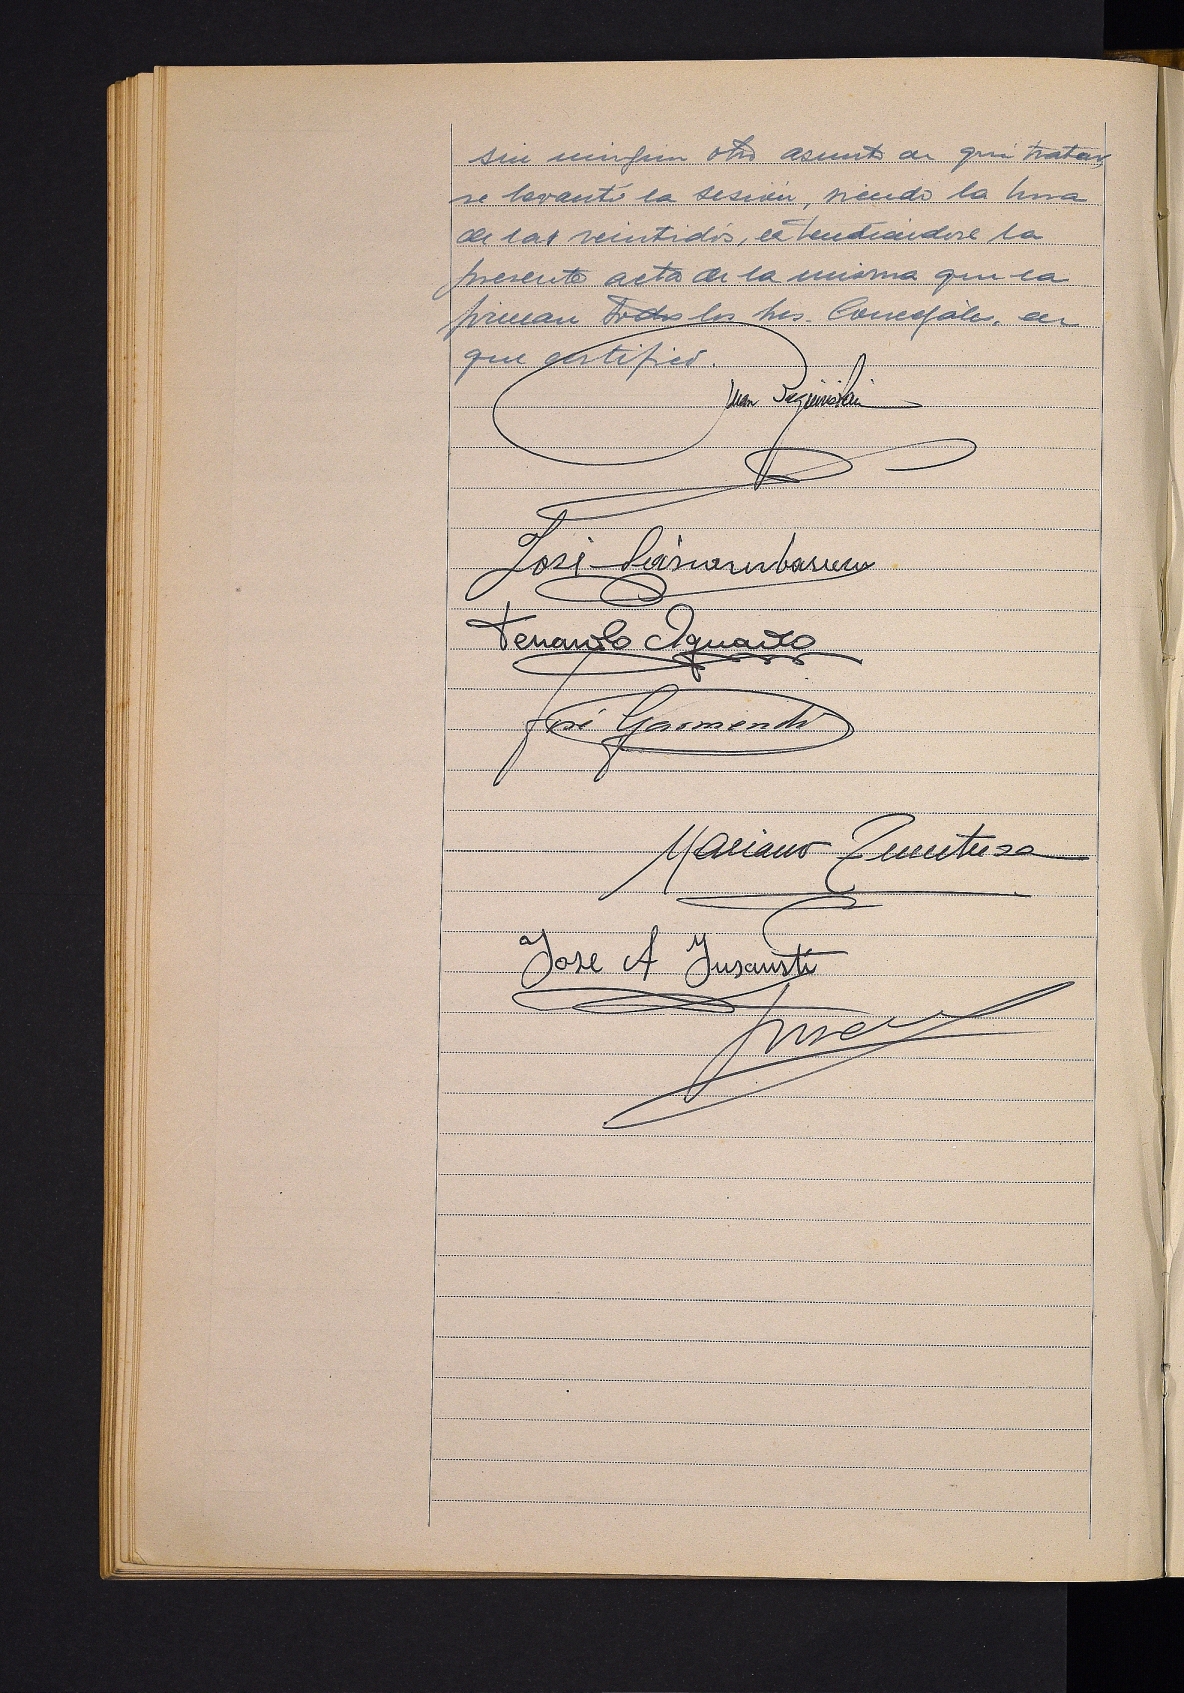 sin ningun otro asunto de qué tratar,
se levantó la sesión, siendo la hora
de las veintidós, extendiéndose la
presente acta de la misma que la
firman todos los Sres. Concejales, de
que certifico.
Juan
José
Fernando Aguado
José Garmendi
Mariano
Jose A Insausti